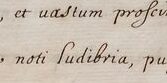 , et uastum prosci
noti ludibria, pu